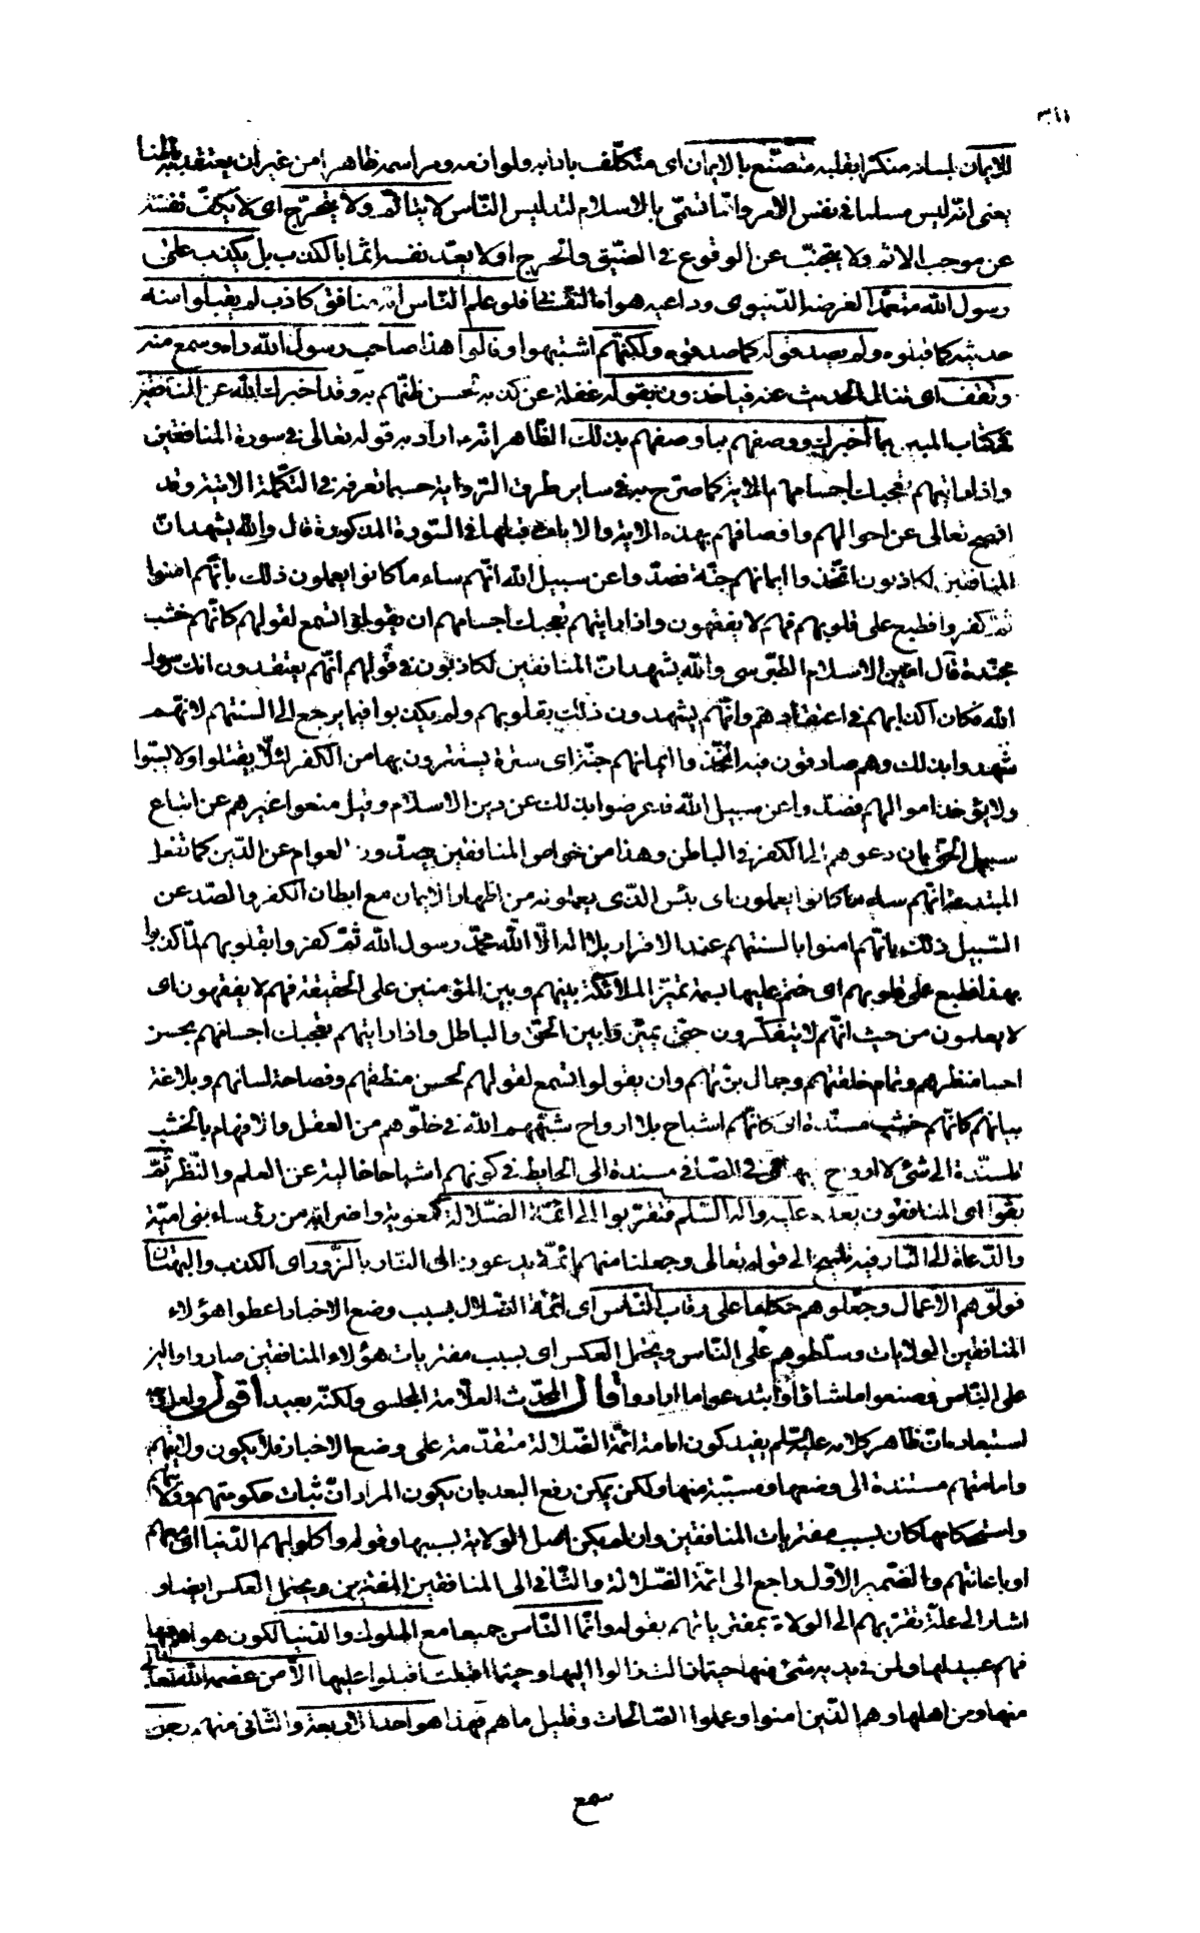 ٣٨١
للايمان بلسانه منكر ابقلبه متصنّع بالايمان اى متكلّف بادابه ولوازمه ومراسمه ظاهرا من غير ان يعتقد به باطنا
يعنى انّه ليس مسلما فى نفس الامر وانّما تسمّى بالاسلام لتدليس النّاس لا يتأثّم ولا يتحرّج اى لا يكفّ نفسه
عن موجب الاثم ولا يتجنّب عن الوقوع فى الضّيق والحرج او لا يعدّ نفسه اثما بالكذب بل يكذب على
رسول الله متعمّدا لغرضه الدّنيوى وداعيه هواه النّفسانى فلو علم النّاس انّه منافق كاذب لم يقبلوا منه
حديثه كما قبلوه ولم يصدقوا قوله كما صدقوه ولكنّهم اشتبهوا وقالوا هذا صاحب رسول الله راه وسمع منه
ولقف اى تناول الحديث عنه فياخذون بقوله غفلة عن كذبه لحسن ظنّهم به وقد اخبرك الله عن المنافقين
فى كتاب المبين بما اخبرك ووصفهم بما وصفهم به لك الظّاهر انّه اراد به قوله تعالى فى سورة المنافقين
واذا رايتهم تعجبك اجسامهم الاية كما صرّح به فى ساير طرق الرّواية حسبما تعرفه فى التكملة الاتية وقد
افصح تعالى عن احوالهم واوصافهم بهذه الاية والايات قبلها فى السّورة المذكورة قال والله يشهد انّ
المنافقين لكاذبون اتّخذوا ايمانهم جنّة فصدّوا عن سبيل الله انّهم ساء ما كانوا يعملون ذلك بانّهم امنوا
ثمّ كفروا فطبع على قلوبهم فهم لا يفقهون واذا رايتهم تعجبك اجسامهم وان يقولوا تسمع لقولهم كانّهم خشب
مسنّدة قال امين الاسلام الطّبرسى والله يشهد انّ المنافقين لكاذبون فى قولهم انّهم يعتقدون انك رسول
الله فكان اكذابهم فى اعتقادهم وانّهم يشهدون ذلك بقلوبهم ولم يكذبوا فيما يرجع الى السنتهم لانّهم
شهدوا بذلك وهم صادقون فيه اتّخذوا ايمانهم جنّة اى سترة يستترون بها من الكفر لئلّا يقتلوا ولا يسبوا
ولا يؤخذ اموالهم فصدّوا عن سبيل الله فاعرضوا بذلك عن دين الاسلام وقيل منعوا غيرهم عن اتباع
سبيل الحق بان دعوهم الى الكفر فى الباطن وهذا من خواص المنافقين يصدّون العوام عن الدّين كما تفعل
المبتدعة انّهم ساء ما كانوا يعملون اى بئس الّذى يعملونه من اظهار الايمان مع ابطان الكفر والصّد عن
السّبيل ذلك بانّهم امنوا بالسنتهم عند الاقرار بلا اله الّا الله محمّد رسول الله ثمّ كفروا بقلوبهم لمّا كذبوا
بهذا فطبع على قلوبهم اى ختم عليها بسمة تميّز الملائكة بينهم وبين المؤمنين على الحقيقة فهم لا يفقهون اى
لا يعلمون من حيث انّهم لا يتفكّرون حتّى يميّزوا بين الحقّ والباطل واذا رايتهم تعجبك اجسامهم بحسن
منظرهم وتمام خلقتهم وجمال بزّتهم وان يقولوا تسمع لقولهم لحسن منطقهم وفصاحة لسانهم وبلاغة
بيانهم كانّهم خشب مسنّدة اى كانّهم اشباح بلا ارواح شبّههم الله فى خلوّهم من العقل والافهام بالخشب
المسنّدة الى شئ لا ارواح فيها مسندة الى الحايط فى كونهم اشباحا خالية عن العلم والنّظر ثمّ
بقوا اى المنافقون بعده عليه واله السّلام فتقرّبوا الى ائمّة الضّلالة كمعوية واضرابه من رؤساء بنى اميّة
والدّعاة الى النّار فيه تلميح الى قوله تعالى وجعلنا منهم ائمّة يدعون الى النّار بالزّور اى الكذب والبهتان
فولّوهم الاعمال وجعلوهم حكاما على رقاب النّاس اى ائمّة الضّلال بسبب وضع الاخبار اعطوا هؤلاء
المنافقين الولايات وسلّطوهم على النّاس ويحتمل العكس اى بسبب مفتريات هؤلاء المنافقين صاروا والين
على النّاس وصنعوا ما شاؤا وابتدعوا ما ارادوا قال المحدّث العلّامة المجلسى ولكنّه بعيد اقول ولعلّ وجه
استبعاده انّ ظاهر كلامه عليه السّلم يفيد كون امامة ائمّة الضّلالة متقدّمة على وضع الاخبار فلا يكون ولايتهم
وامامتهم مستندة الى وضعها ومسبّبة منها ولكن يمكن رفع البعد بان يكون المراد انّ ثبات حكومتهم وقوامها
واستحكامها كان بسبب مفتريات المنافقين وان لم يكن اصل الولاية بسببها وقوله واكلوا بهم الدّنيا اى معهم
او باعانتهم والضّمير الاوّل راجع الى ائمّة الضّلالة والثّانى الى المنافقين المفترين ويحتمل العكس ايضا و
اشار الى علّة تقرّبهم الى الولاة بمفترياتهم بقوله وانّما النّاس جميعا مع الملوك والدّنيا لكون هواهم فيها
فهم عبيد لها ولمن فى يديه شئ منها حيثما زالت زالوا اليها وحيثما اقبلت اقبلوا عليها الّا من عصمه الله تعالى
منها ومن اهلها وهم الّذين امنوا وعملوا الصّالحات وقليل ما هم فهذا هو احد الاربعة والثّانى منهم رجل
سمع